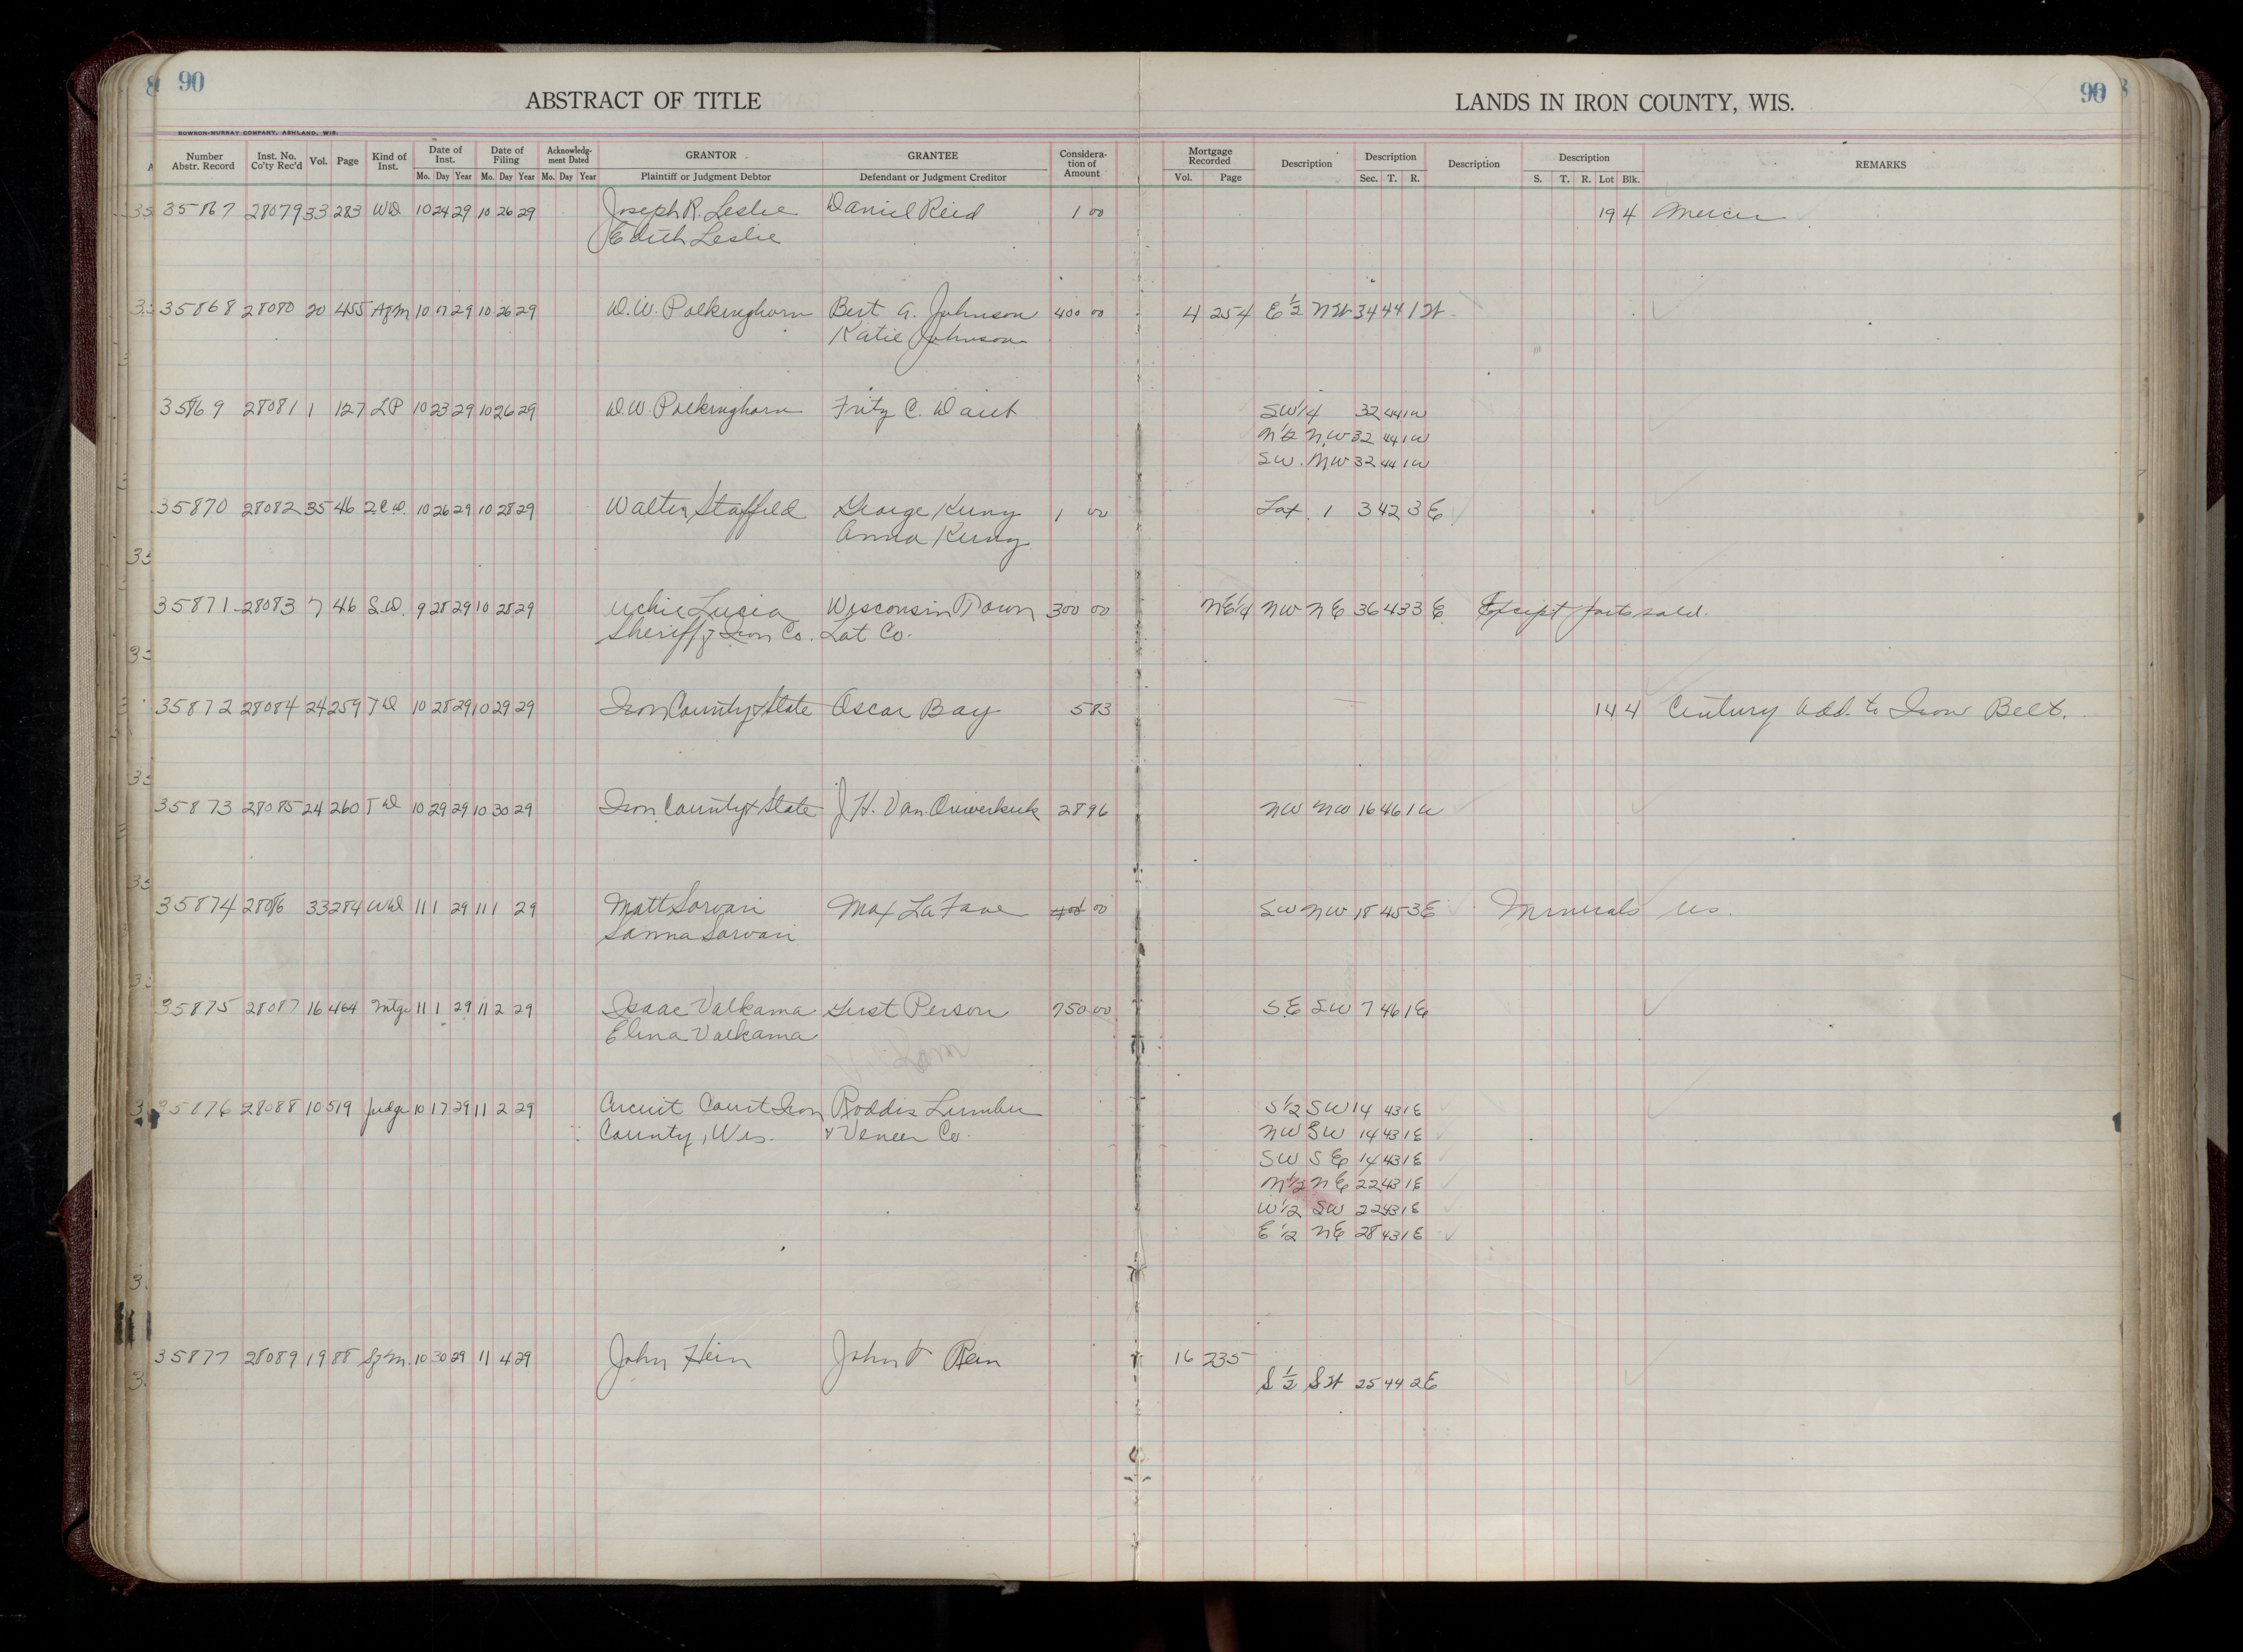 90
90
ABSTRACT OF TITLE
LANDS IN IRON COUNTY, WIS.
BOWRON-MURRAY COMPANY, ASHLAND, WIS.
Number Abstr. Record Inst. No. Co'ty Rec'd Vol. Page Kind of Inst. Date of Inst. Date of Filing Acknowledg-ment Dated GRANTOR GRANTEE Considera-tion of Amount Mortgage Recorded Description Description Description Description REMARKS
Mo. Day Year Mo. Day Year Mo. Day Year Plaintiff or Judgment Debtor Defendant or Judgment Creditor Vol. Page Sec. T. R. S. T. R. Lot Blk.
35867 28079 33 283 WD 10 24 29 10 26 29 Joseph R. Leslie Daniel Reid 1 00 19 4 Mercer
Edith Leslie
35868 28080 20 455 Agm 10 7 29 10 26 29 W. W. Polkinghorn Bert A. Johnson 400 00 4 254 E 1/2 NW 34 44 1 W
Katie Johnson
35869 28081 1 127 LP 10 23 29 10 26 29 W. W. Polkinghorn Fritz C. SW 1/4 32 44 1 W
N 1/2 NW 32 44 1 W
SW NW 32 44 1 W
35870 28082 35 46 2CD 10 26 29 10 28 29 Walter Staffeld George Kuny 1 00 Lot 1 3 42 3 E
Anna Kuny
35871 28083 7 46 S.D. 9 28 29 10 28 29 Lucia Wisconsin Town 300 00 NE 1/4 NW NE 36 43 3 E Except parts sold.
Sheriff Iron Co. Lot Co.
35872 28084 24 259 TD 10 28 29 10 29 29 Iron County & State Oscar Bay 5 83 14 4 Century Add. to Iron Belt.
35873 28085 24 260 TD 10 29 29 10 30 29 Iron County & State J. H. Van Ouwerkerk 28 96 NW NW 16 46 1 W
35874 28086 33 284 WD 11 1 29 11 1 29 Matt Sarvari Max LaFave 00 SW NW 18 45 3 E Minerals res.
Sanna Sarvari
35875 28087 16 464 Mtge 11 1 29 11 2 29 Isaac Valkama Gust Person 750 00 SE SW 7 46 1 E
Elina Valkama
35876 28088 10 519 Judge 10 17 29 11 2 29 Circuit Court Iron Roddis Lumber S 1/2 SW 14 43 1 E
County, Wis. & Veneer Co. NW SW 14 43 1 E
SW SE 14 43 1 E
N 1/2 NE 22 43 1 E
W 1/2 SW 22 43 1 E
E 1/2 NE 28 43 1 E
35877 28089 19 88 10 30 29 11 4 29 John Hein John 16 235
S 1/2 SW 25 44 2 E